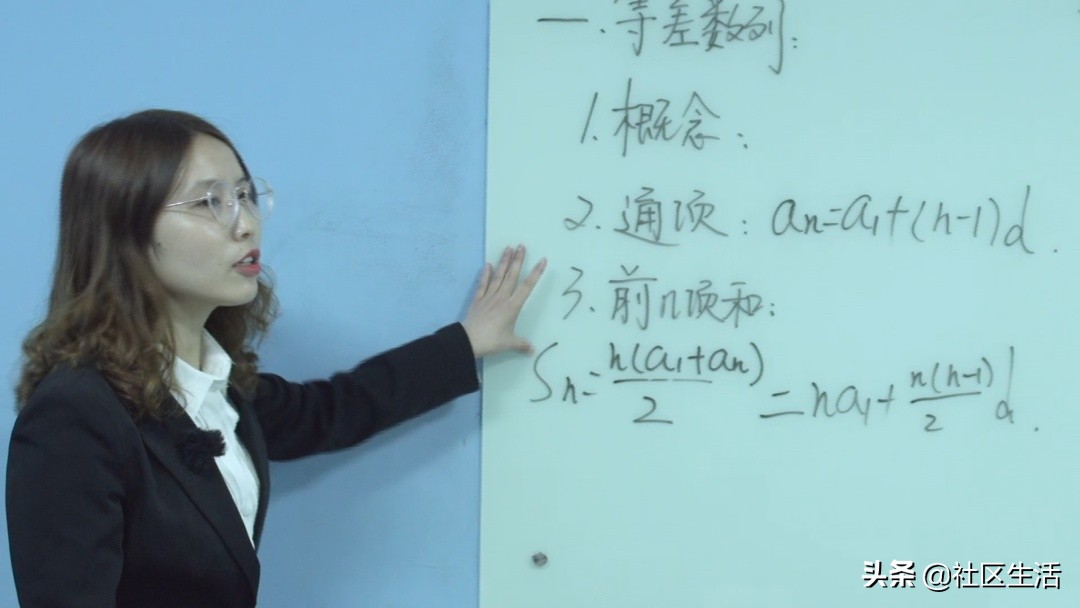 一.等差数列:
1.概念:
2.通项: an=a1+(n-1)d.
3.前n项和:
Sn=n(a1+an)/2=na1+n(n-1)/2 d.
头条 @社区生活